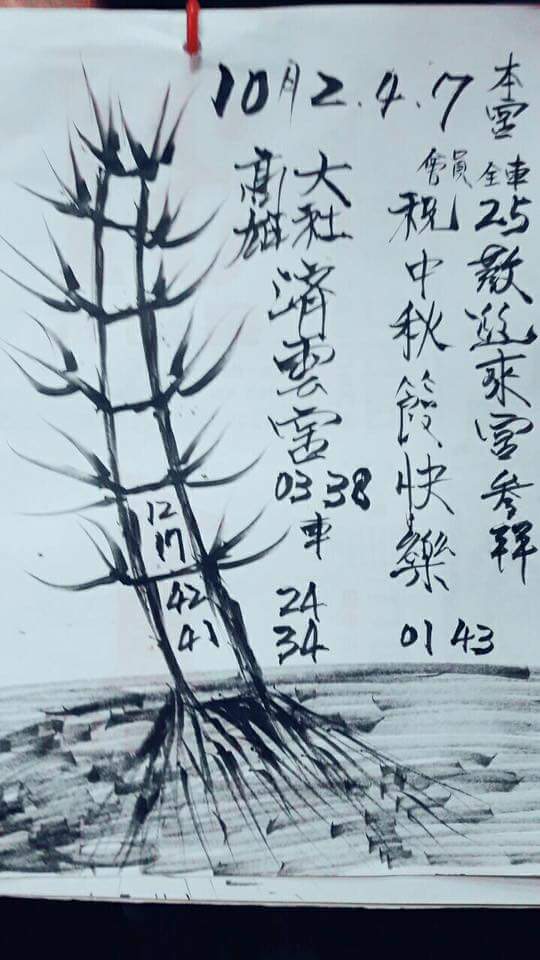 10月2.4.7
本宮
全車25敬邀來宮參詳
會員
祝中秋節快樂
01 43
大社
高雄
濟雲宮
03 38
車
24
34
12
17
42
41